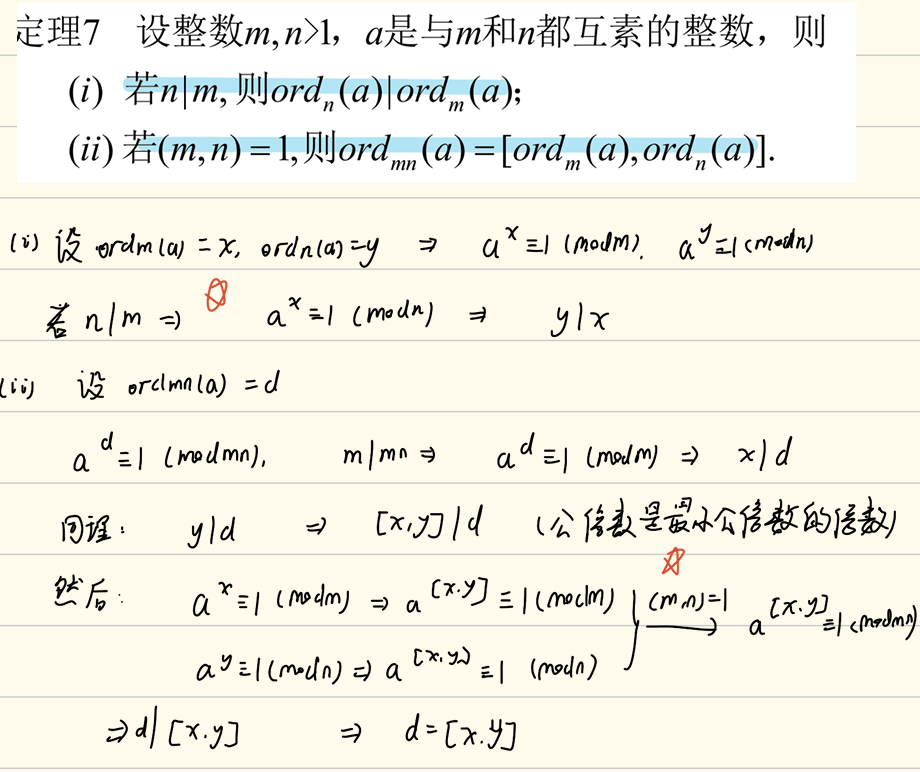 定理7 设整数m, n>1，a是与m和n都互素的整数，则
(i) 若n|m, 则ord_n(a)|ord_m(a);
(ii) 若(m, n) = 1,则ord_mn(a) = [ord_m(a), ord_n(a)].
(i) 设 ordm(a) = x, ordn(a) = y ⇒ a^x ≡ 1 (mod m). a^y ≡ 1 (mod n)
若 n|m ⇒ a^x ≡ 1 (mod n) ⇒ y|x
(ii) 设 ordmn(a) = d
a^d ≡ 1 (mod mn), m|mn ⇒ a^d ≡ 1 (mod m) ⇒ x|d
同理: y|d ⇒ [x,y]|d (公倍数是最小公倍数的倍数)
然后: a^x ≡ 1 (mod m) ⇒ a^[x.y] ≡ 1 (mod m) (m,n)=1 a^[x.y] ≡ 1 (mod mn)
a^y ≡ 1 (mod n) ⇒ a^[x,y] ≡ 1 (mod n)
⇒ d|[x.y] ⇒ d = [x.y]